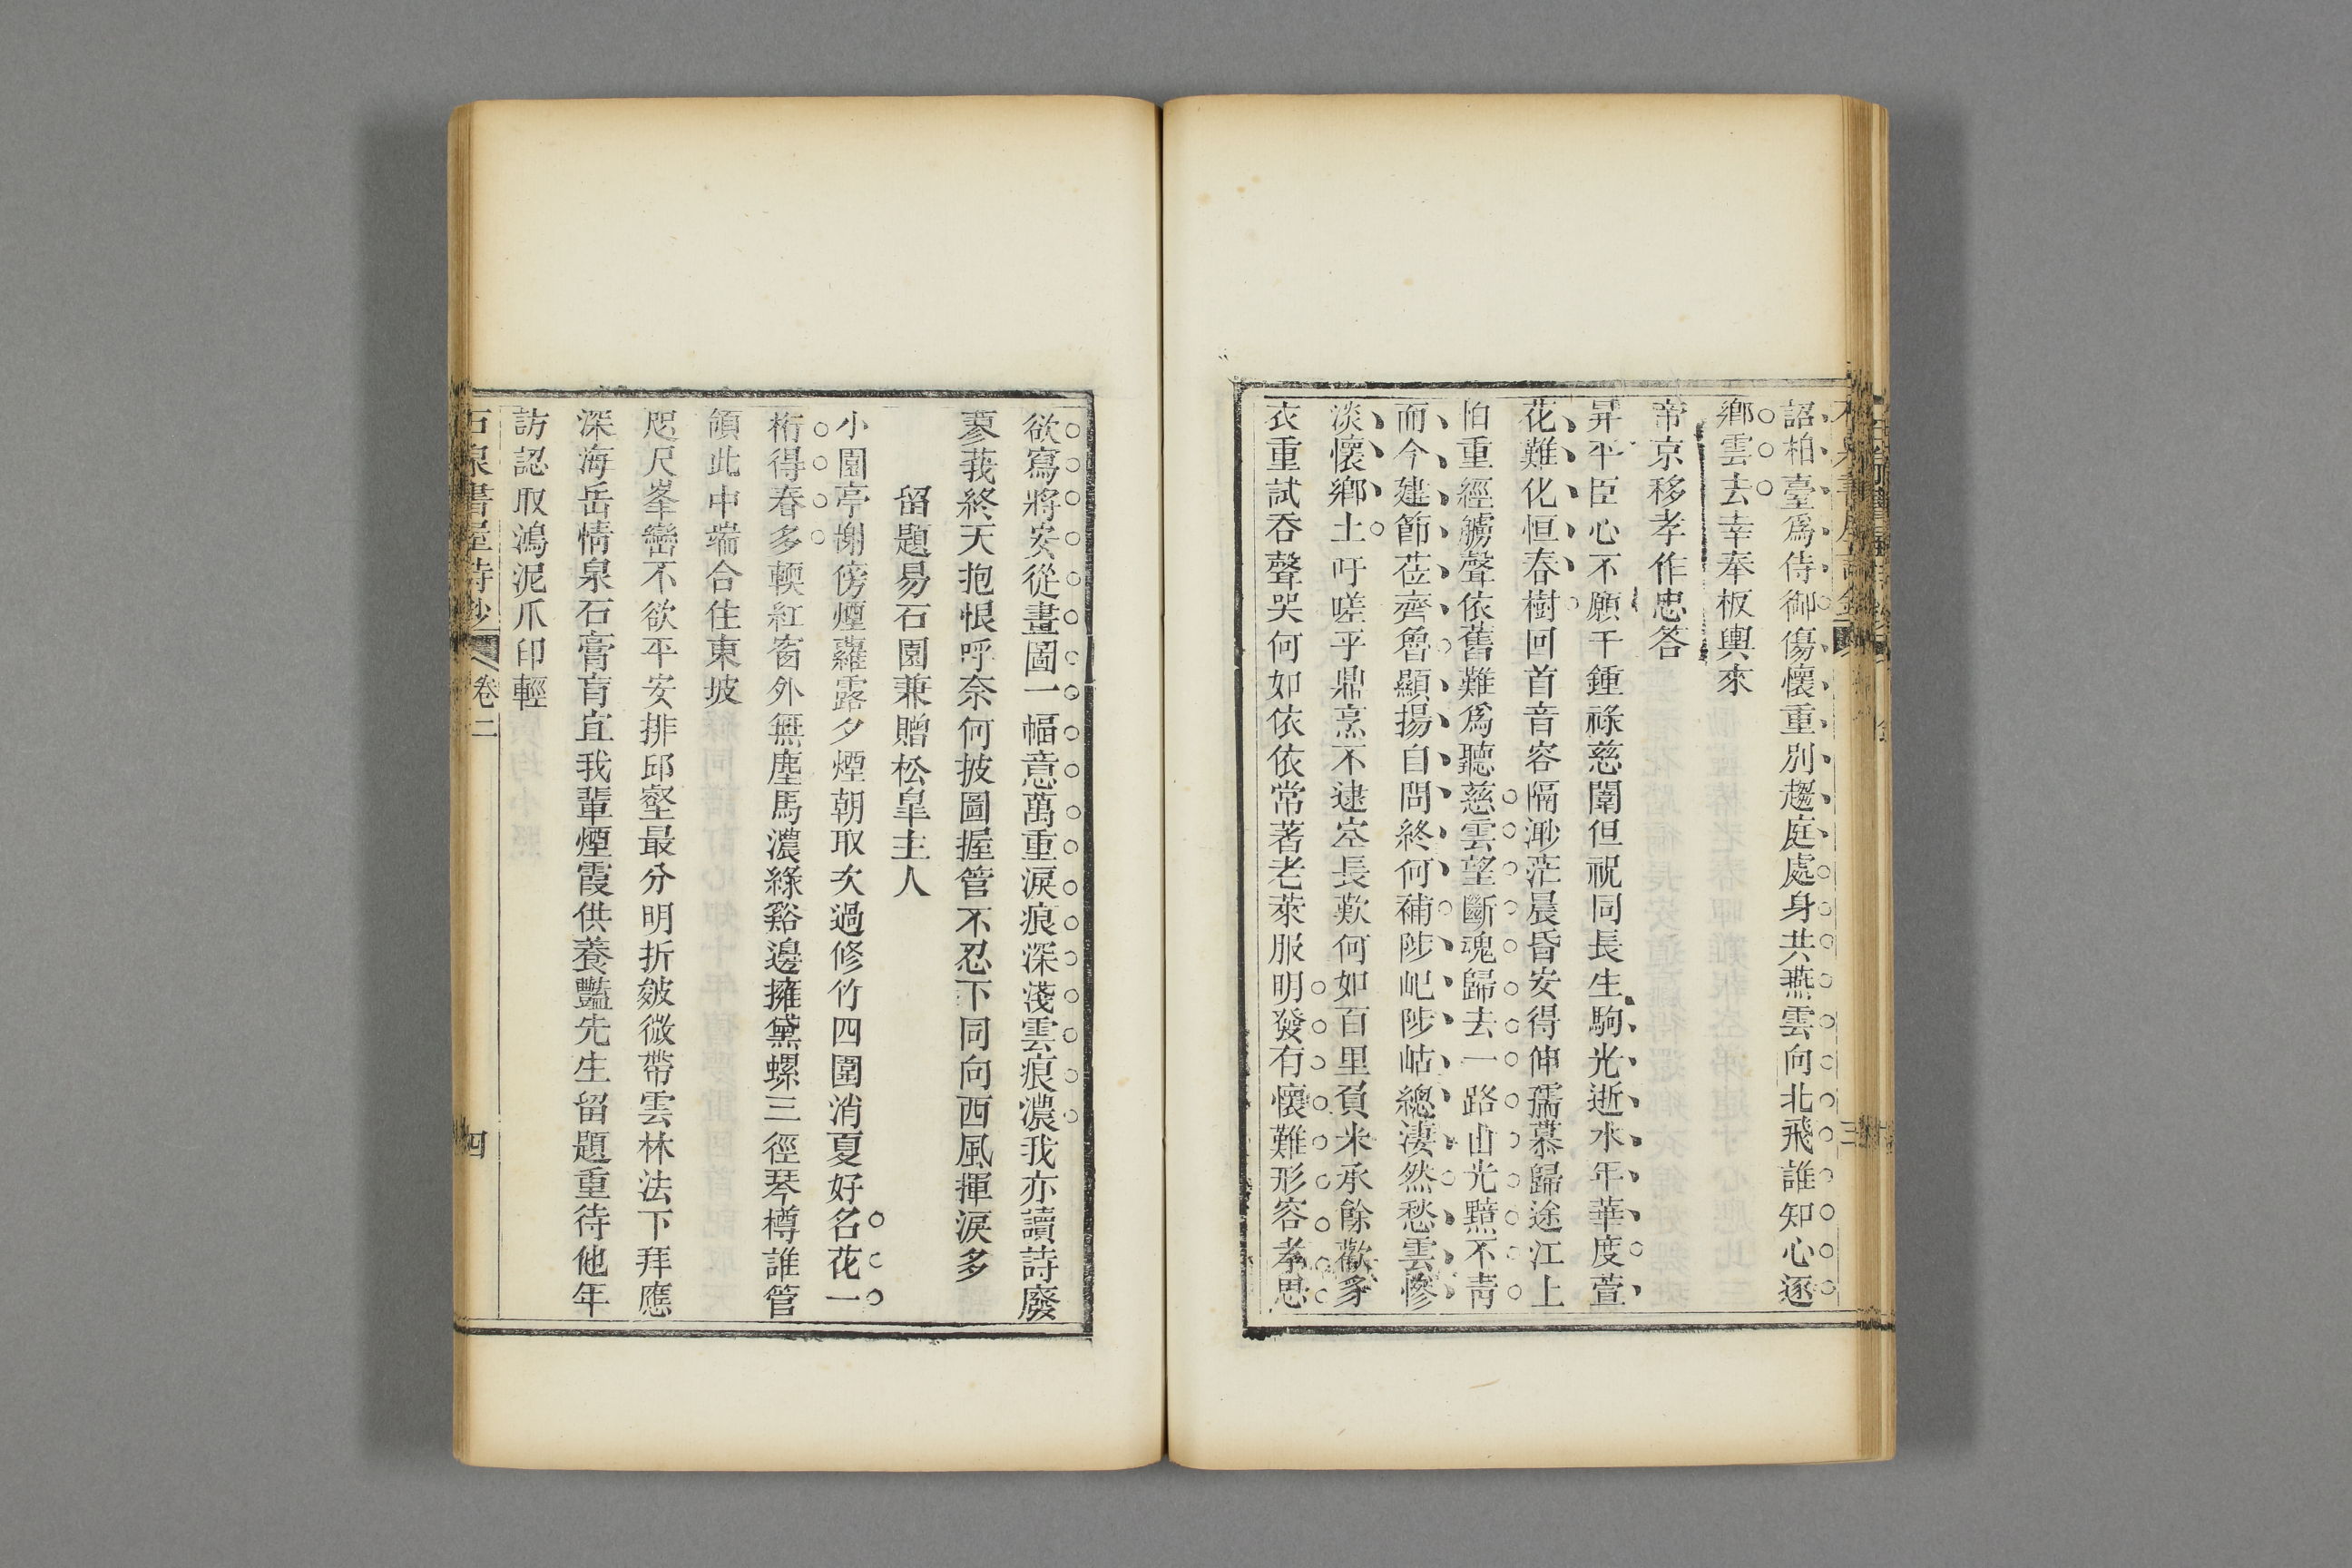 詔柏臺爲侍御傷懷重別趨庭處身共燕雲向北飛誰知心逐
鄉雲去幸奉板輿來
帝京移孝作忠答
昇平臣心不願千鍾祿慈闈但祝同長生駒光逝水年華度萱
花難化恒春樹回首音容隔渺茫晨昏安得伸孺慕歸途江上
怕重經艣聲依舊難爲聽慈雲望斷魂歸去一路山光黯不靑
而今建節莅齊魯顯揚自問終何補陟屺陟岵總淒然愁雲慘
淡懷鄉土吁嗟乎鼎烹不逮空長歎何如百里負米承餘歡豸
衣重試吞聲哭何如依依常著老萊服明發有懷難形容孝思
欲寫將安從畫圖一幅意萬重淚痕深淺雲痕濃我亦讀詩廢
蓼莪終天抱恨呼奈何披圖握管不忍下同向西風揮淚多
留題易石園兼贈松皐主人
小園亭榭傍煙蘿露夕煙朝取次過修竹四圍消夏好名花一
桁得春多輭紅窗外無塵馬濃綠谿邊擁黛螺三徑琴樽誰管
領此中端合住東坡
咫尺峯巒不欲平安排邱壑最分明折皴微帶雲林法下拜應
深海岳情泉石膏肓宜我輩煙霞供養豔先生留題重待他年
訪認取鴻泥爪印輕
石泉書屋詩鈔 卷二 四